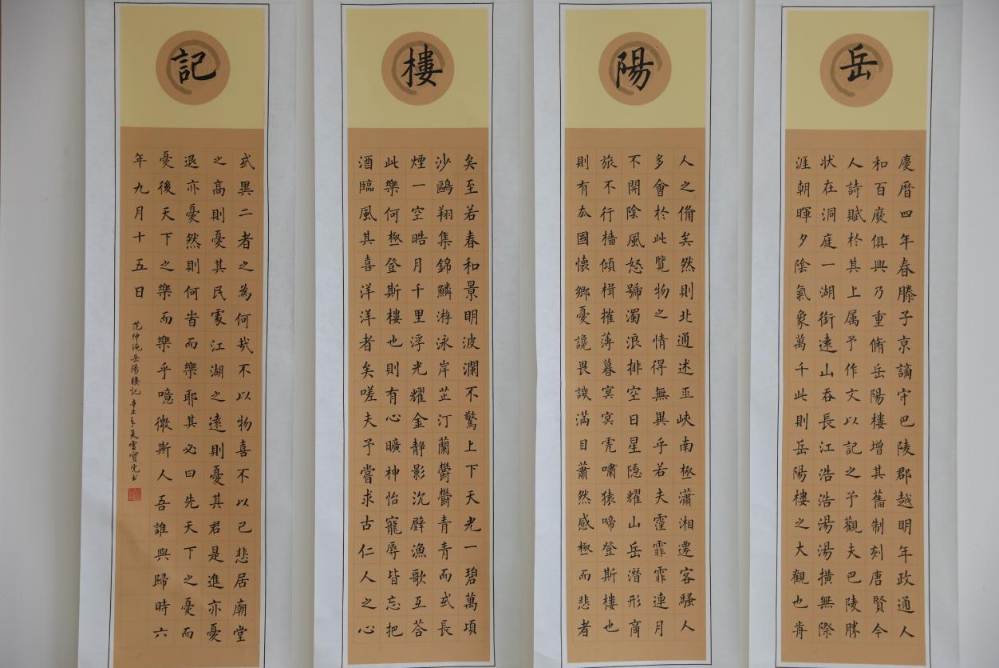 岳
慶曆四年春滕子京謫守巴陵郡越明年政通人
和百廢俱興乃重脩岳陽樓增其舊制刻唐賢今
人詩賦於其上属予作文以記之予觀夫巴陵勝
狀在洞庭一湖銜遠山吞長江浩浩湯湯橫無際
涯朝暉夕陰氣象萬千此則岳陽樓之大觀也前
陽
人之備矣然則北通述巫峽南極瀟湘遷客騷人
多會於此覽物之情得無異乎若夫霪霏霏連月
不開陰風怒號濁浪排空日星隱耀山岳潛形商
旅不行檣傾楫摧薄暮冥冥虎嘯猿啼登斯樓也
則有去國懷鄉憂讒畏譏滿目蕭然感極而悲者
樓
矣至若春和景明波瀾不驚上下天光一碧萬頃
沙鷗翔集錦鱗游泳岸芷汀蘭鬱鬱青青而或長
煙一空皓月千里浮光耀金靜影沉璧漁歌互答
此樂何極登斯樓也則有心曠神怡寵辱皆忘把
酒臨風其喜洋洋者矣嗟夫予嘗求古仁人之心
記
或異二者之為何哉不以物喜不以己悲居廟堂
之高則憂其民處江湖之遠則憂其君是進亦憂
退亦憂然則何旹而樂耶其必曰先天下之憂而
憂後天下之樂而樂乎噫微斯人吾誰與歸時六
年九月十五日
范仲淹岳陽樓記辛丑年夏